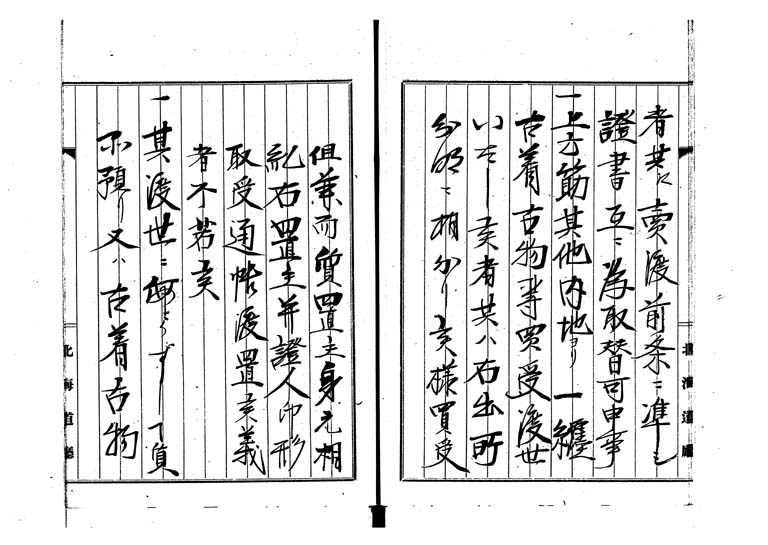 者共に売渡前条ニ準し
證書互ニ為取替可申事
一上方筋其他内地ゟ一纏
古着古物等買受渡世
いたし候者共ハ右出所
分明ニ相分り候様買受
但兼而質置主身元相
糺右置主并證人印形
取受通帖渡置候義
者不苦候
一其渡世ニ無之して質
不預り又ハ古着古物
北海道廳
北海道廳